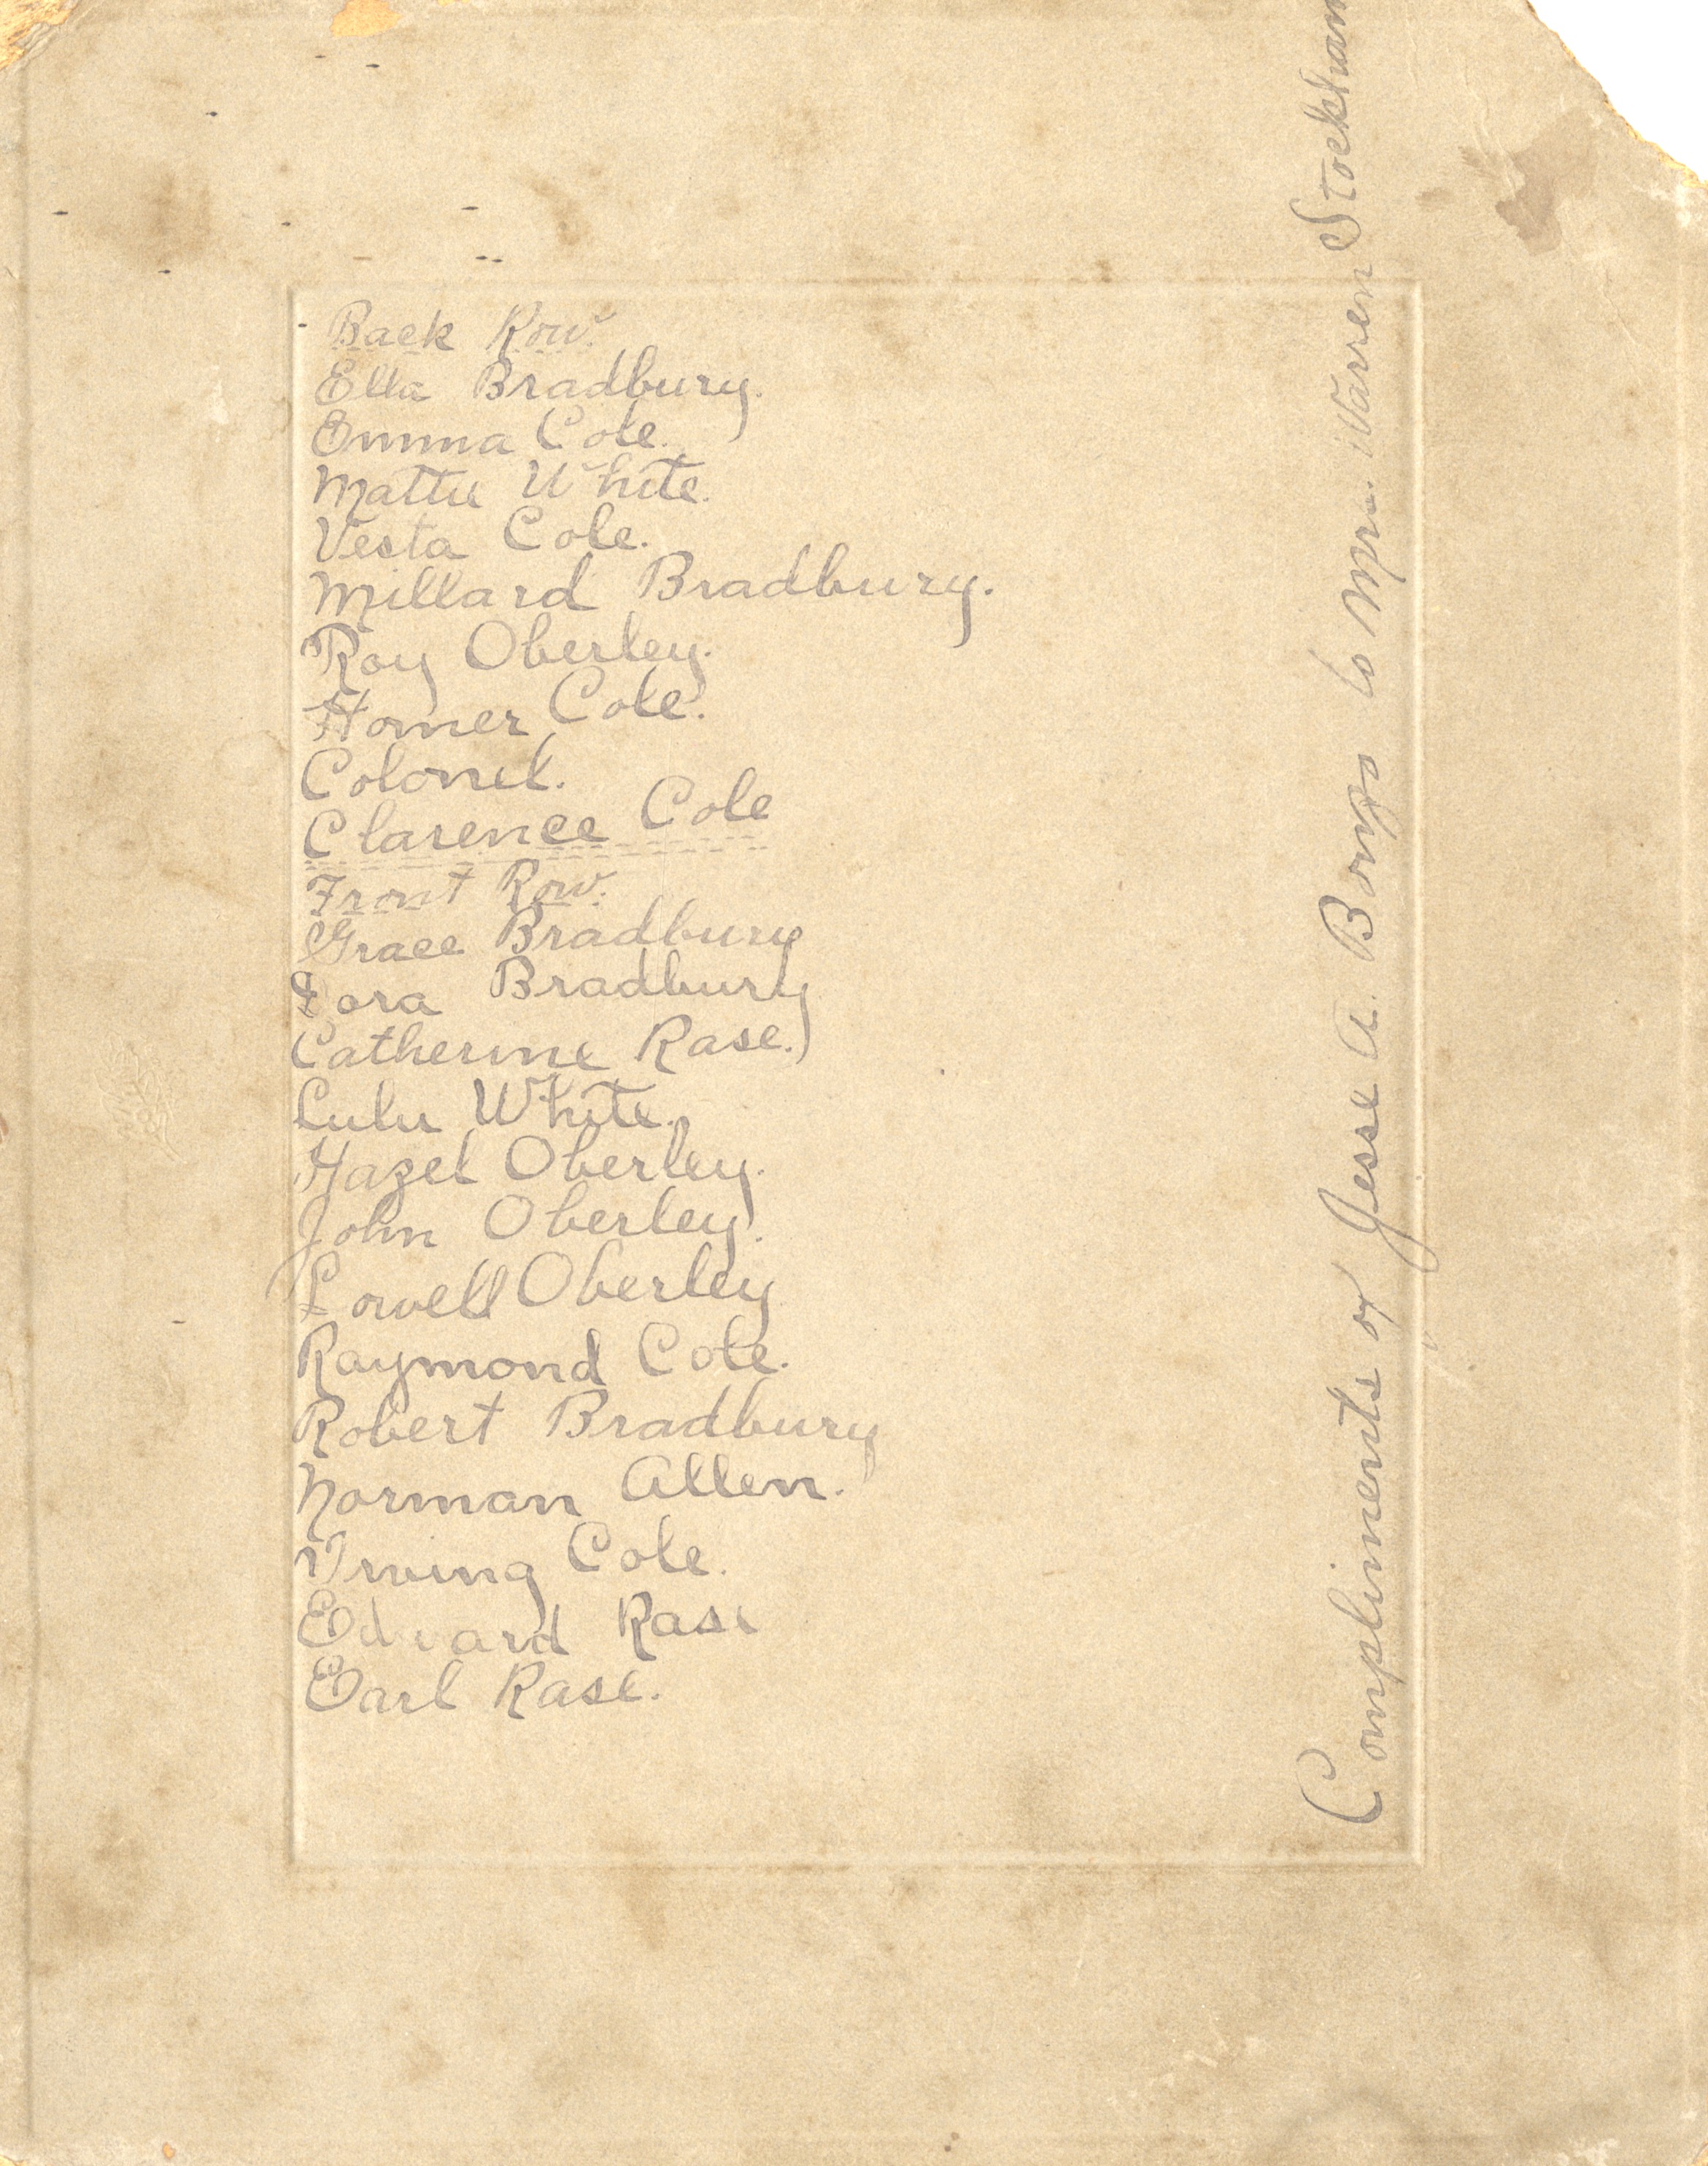 Back Row.
Ella Bradbury.
Emma Cole.
Mattie White.
Vesta Cole.
Millard Bradbury.
Roy Oberley.
Homer Cole.
Colonel.
Clarence Cole
Front Row.
Grace Bradbury
Dora Bradbury
Catherine Rase.
Lulu White.
Hazel Oberley.
John Oberley.
Lowell Oberley
Raymond Cole.
Robert Bradbury
Norman Allen.
Irving Cole.
Edward Rase
Earl Rase.
Compliments of Jesse A. to Mrs. Warren Stockham